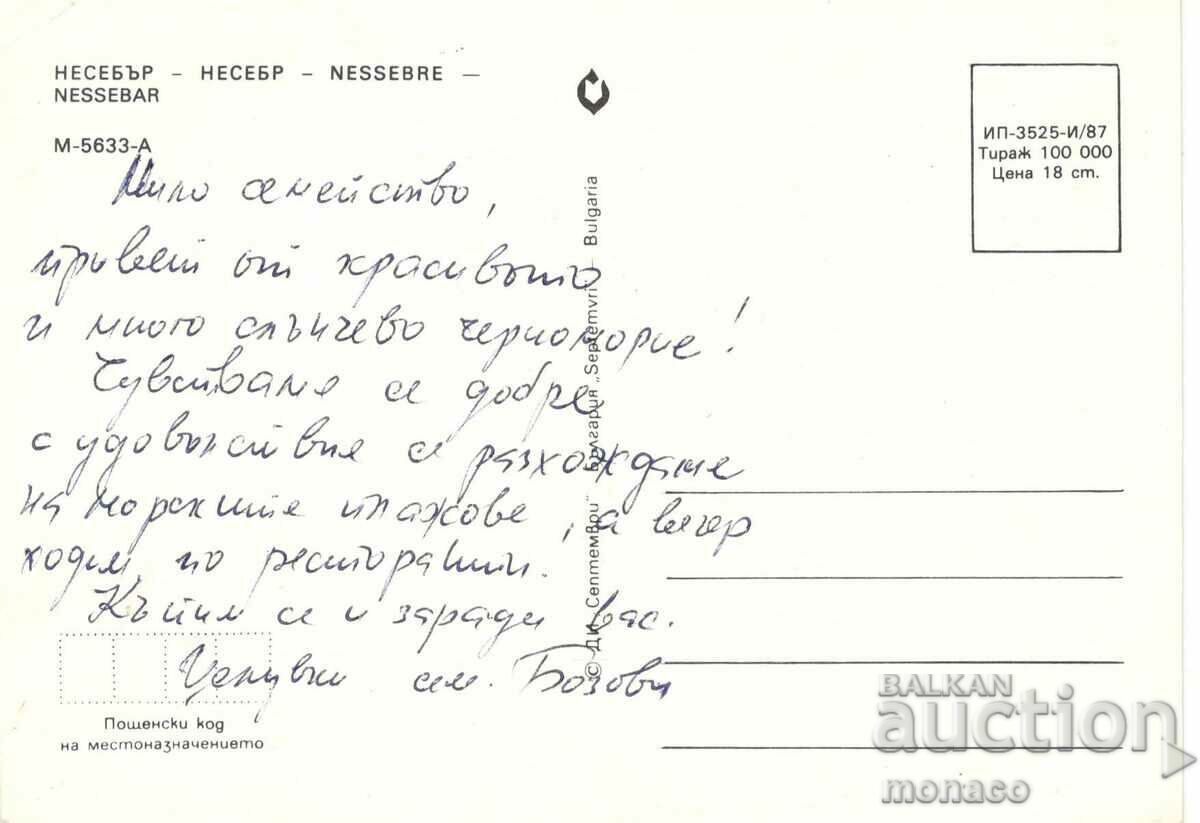 НЕСЕБЪР – НЕСЕБР – NESSEBRE –
NESSEBAR
М-5633-А
Мило семейство,
привет от красивото
и много слънчево черноморие!
Чувстваме се добре,
с удоволствие се разхождаме
на морските плажове, а вечер
ходим по ресторанти.
Къпим се и заради вас.
Целувки сем. Бозови
Пощенски код
на местоназначението
© ДИ „Септември" България „Septemvri" – Bulgaria
ИП-3525-И/87
Тираж 100 000
Цена 18 ст.
BALKAN
auction
monaco